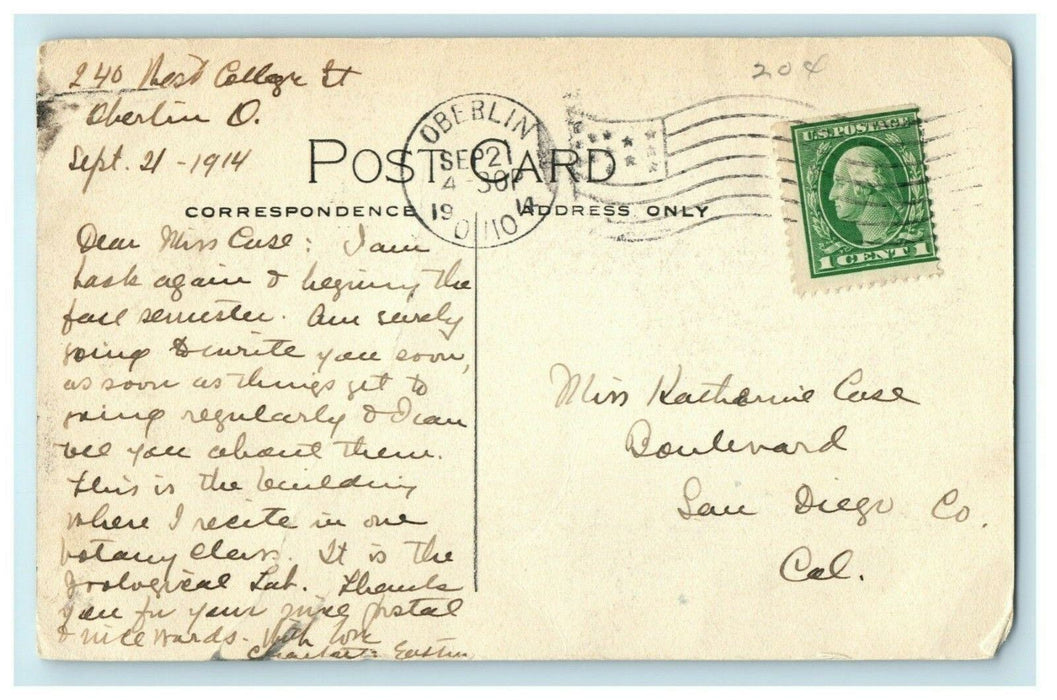 240 West College St
Oberlin O.
Sept. 21 - 1914
204
OBERLIN
SEP 21
4-30P
1914
O
U.S. POSTAGE
1 CENT 1
POST CARD
CORRESPONDENCE
ADDRESS ONLY
Dear Miss Case: I am
back again & begining the
fall semester. Am surely
going to write you soon,
as soon as things get to
going regularly & I can
tell you about them.
This is the building
where I recite in one
botany class. It is the
Zoological Lab. Thank
you for your nice postal
& nice words. With love
Charlotte
Miss Katherine Case
Boulevard
San Diego Co.
Cal.